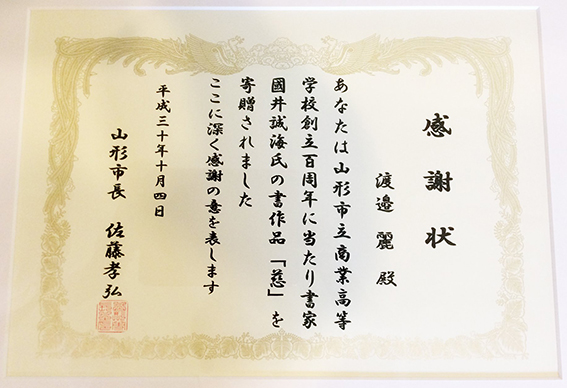 感謝状
渡邉 麗 殿
あなたは山形市立商業高等
学校創立百周年に当たり書家
國井誠海氏の書作品「慈」を
寄贈されました
ここに深く感謝の意を表します
平成三十年十月四日
山形市長 佐藤孝弘